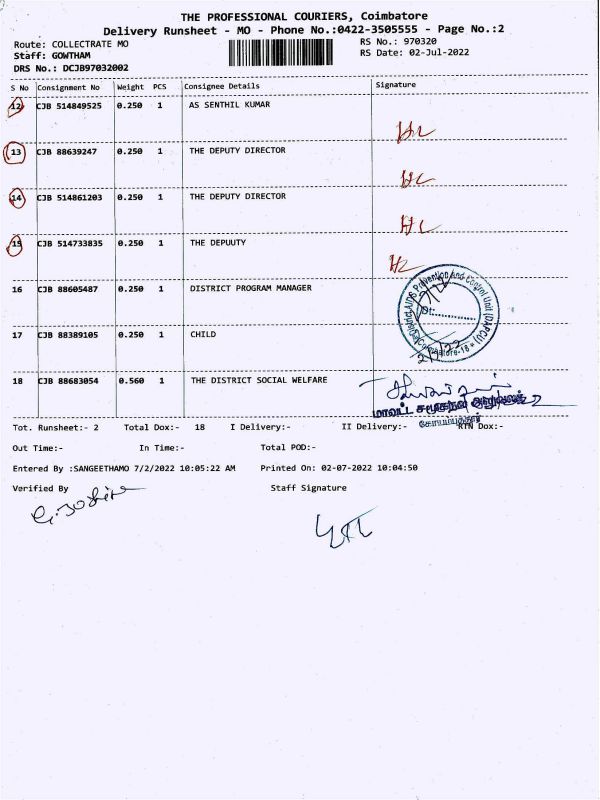 THE PROFESSIONAL COURIERS, Coimbatore
Delivery Runsheet - MO - Phone No.:0422-3505555 - Page No.:2
Route: COLLECTRATE MO RS No.: 970320
Staff: GOWTHAM RS Date: 02-Jul-2022
DRS No.: DCJB97032002
S No Consignment No Weight PCS Consignee Details Signature
12 CJB 514849525 0.250 1 AS SENTHIL KUMAR
13 CJB 88639247 0.250 1 THE DEPUTY DIRECTOR
14 CJB 514861203 0.250 1 THE DEPUTY DIRECTOR
15 CJB 514733835 0.250 1 THE DEPUUTY
16 CJB 88605487 0.250 1 DISTRICT PROGRAM MANAGER
District AIDS Prevention and Control Unit (DAPCU)
Dt:
17 CJB 88389105 0.250 1 CHILD
2/7/22
18 CJB 88683054 0.560 1 THE DISTRICT SOCIAL WELFARE
மாவட்ட சமூகநல அலுவலர்
கோயம்புத்தூர்
Tot. Runsheet:- 2 Total Dox:- 18 I Delivery:- II Delivery:- RTN Dox:-
Out Time:- In Time:- Total POD:-
Entered By :SANGEETHAMO 7/2/2022 10:05:22 AM Printed On: 02-07-2022 10:04:50
Verified By Staff Signature